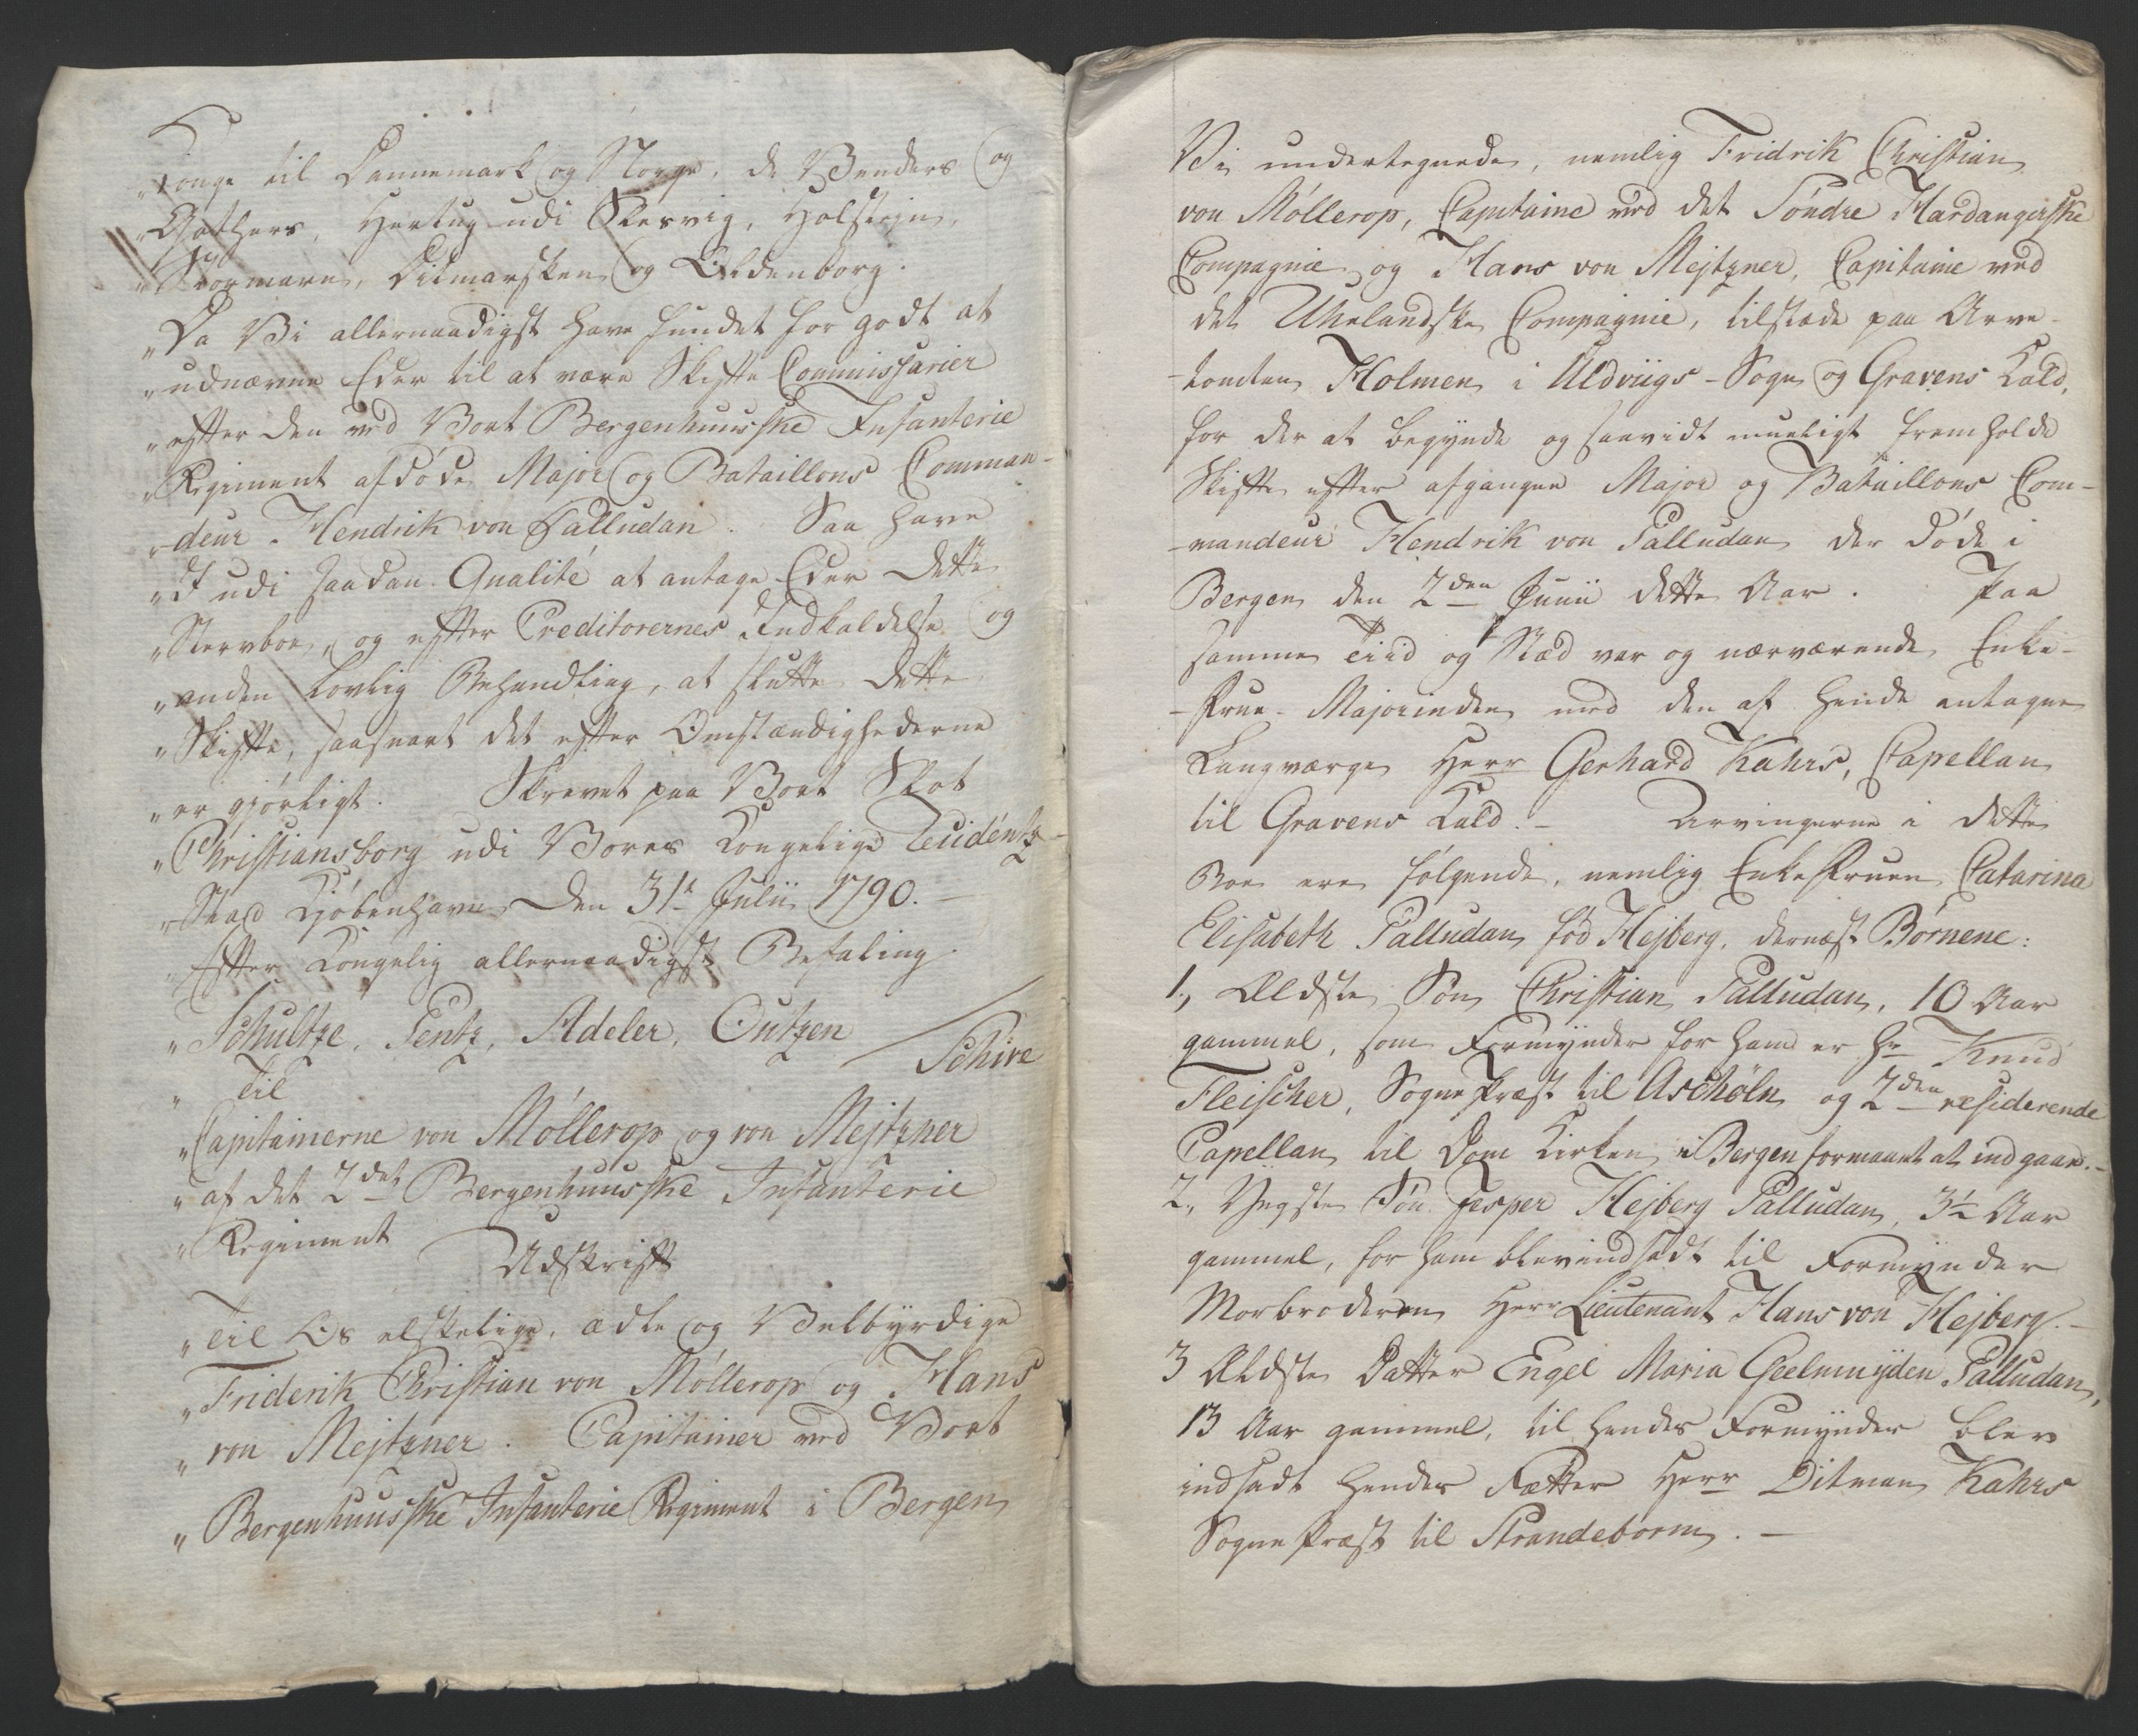 „Konge til Dannemark og Norge, de Venders og
„Gothers, Hertug udi Slesvig, Holsteyn,
„Stormarn, Ditmarsken og Oldenborg.
„Da Vi allernaadigst have fundet for godt at
„udnævne Eder til at være Skifte Commissarier
„efter den ved Vort Bergenhuusske Infanterie
„Regiment afdøde Major og Bataillons Comman-
„deur Hendrik von Palludan. Saa have
„I udi saadan Qualité at antage Eder dette
„Stervboe, og efter Creditorernes Indkaldelse og
„anden lovlig Behandling, at slutte dette
„Skifte, saasnart det efter Omstændighederne
„er giørligt. Skrevet paa Vort Slot
„Christiansborg udi Vores Kongelige Residentz-
„Stad Kiøbenhavn den 31t Julii 1790. –
„Efter Kongelig allernaadigst Befaling.
„Schultze, Pentz, Adeler, Outzen
/ Schive
„ Til
„Capitainerne von Møllerop og von Mejtzner
„af det 2det Bergenhuusske Infanterie
„Regiment
Udskrift
„Til Os elskelige, ædle og Velbyrdige
„Friderik Christian von Møllerop og Hans
„von Mejtzner. Capitainer ved Vort
„Bergenhuusske Infanterie Regiment i Bergen
Vi undertegnede, nemlig Fridrik Christian
von Møllerop, Capitaine ved det Søndre Hardangerske
Compagnie og Hans von Mejtzner, Capitaine ved
det Uhrlandske Compagnie, tilstæde paa Arve-
-tomten Holmen i Uldviigs-Sogn og Gravens Kald,
for der at begynde og saavidt mueligt fremholde
Skifte efter afgangne Major og Bataillons Com-
-mandeur Hendrik von Palludan der døde i
Bergen den 2den Junii dette Aar. Paa
samme Tiid og Stæd var og nærværende Enke-
-Frue-Majorinden med den af hende antagne
Laugværge Herr Gerhard Kahrs, Capellan
til Gravens Kald. – Arvingerne i dette
Boe ere følgende, nemlig EnkeFruen Catarina
Elisabeth Palludan fød Hejberg, dernæst Børnene:
1., Ældste Søn Christian Palludan, 10 Aar
gammel, som Formynder for ham er Hr Knud
Fleischer, SognePræst til Aschøln og 2den residerende
Capellan til Dom Kirken i Bergen formaaet at indgaae. –
2., Yngste Søn Jesper Hejberg Palludan, 3½ Aar
gammel, for ham blev indsadt til Formynder
Morbroderen Herr Lieutenant Hans von Hejberg. –
3 Ældste Datter Engel Maria Geelmuyden Palludan,
13 Aar gammel, til hendes Formynder blev
indsadt hendes Fætter Herr Ditman Kahrs
SognePræst til Strandeborm. –